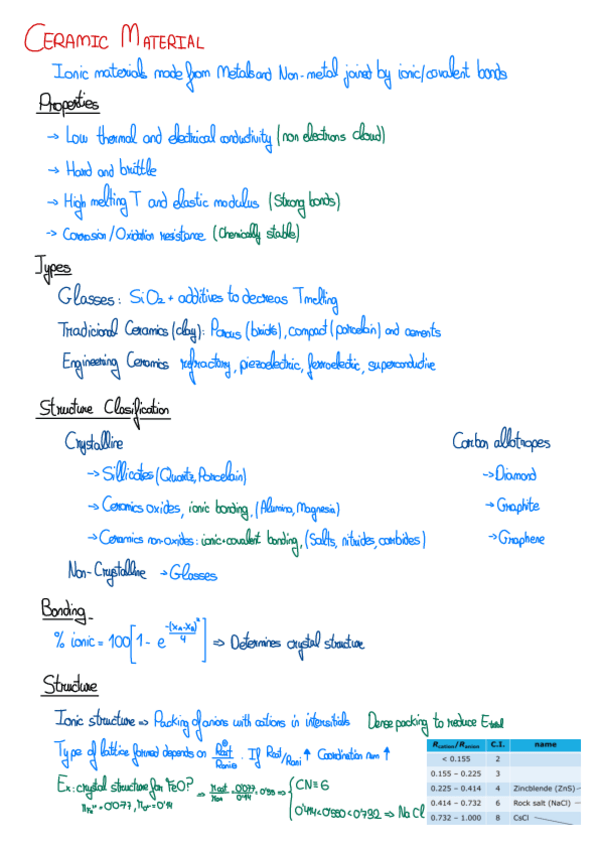 CERAMIC MATERIAL
Ionic materials made from Metals and Non-metal joined by ionic/covalent bonds
Properties
→ Low thermal and electrical conductivity (non electrons cloud)
→ Hard and brittle
→ High melting T and elastic modulus (Strong bonds)
→ Corrosion/Oxidation resistance (Chemically stable)
Types
Glasses: SiO2 + additives to decreas Tmelting
Tradicional Ceramics (clay): Porous (bricks), compact (porcelain) and cements
Engineering Ceramics refractory, piezoelectric, ferroelectric, superconductive
Structure Classification
Crystalline
Carbon allotropes
→ Sillicates (Quartz, Porcelain)
→ Diamond
→ Ceramics oxides, ionic bonding, (Alumina, Magnesia)
→ Graphite
→ Ceramics non-oxides: ionic+covalent bonding, (Salts, nitrides, carbides)
→ Graphene
Non-Crystalline → Glasses
Bonding
% ionic = 100[1 - e^(-(xA-xB)²/4)] ⇒ Determines crystal structure
Structure
Ionic structure ⇒ Packing of anions with cations in interstitials Dense packing to reduce Etotal
Type of lattice formed depends on Rcat/Ranion. If Rcat/Rani ↑ Coordination num ↑
Ex: crystal structure for FeO? ⇒ rcat/rani = 0'077/0'14 = 0'55 ⇒ { CN = 6
0'414<0'550<0'732 ⇒ NaCl
= 0'077, = 0'14
Rcation/Ranion C.I. name
< 0.155 2
0.155 – 0.225 3
0.225 – 0.414 4 Zincblende (ZnS)
0.414 – 0.732 6 Rock salt (NaCl)
0.732 – 1.000 8 CsCl